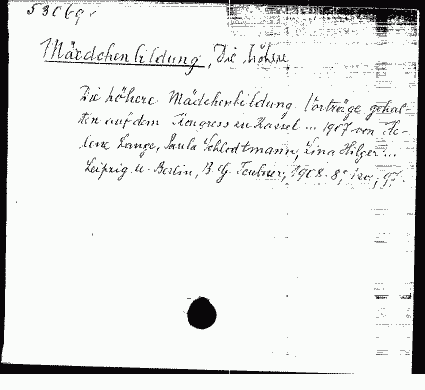 53069
Mädchenbildung, Die höhere
Die höhere Mädchenbildung. Vorträge gehal-
ten auf dem Kongress zu Kassel ... 1907 von He-
lene Lange, Paula Schlodtmann, Lina Hilger ...
Leipzig u. Berlin, B. G. Teubner, 1908. 8°,